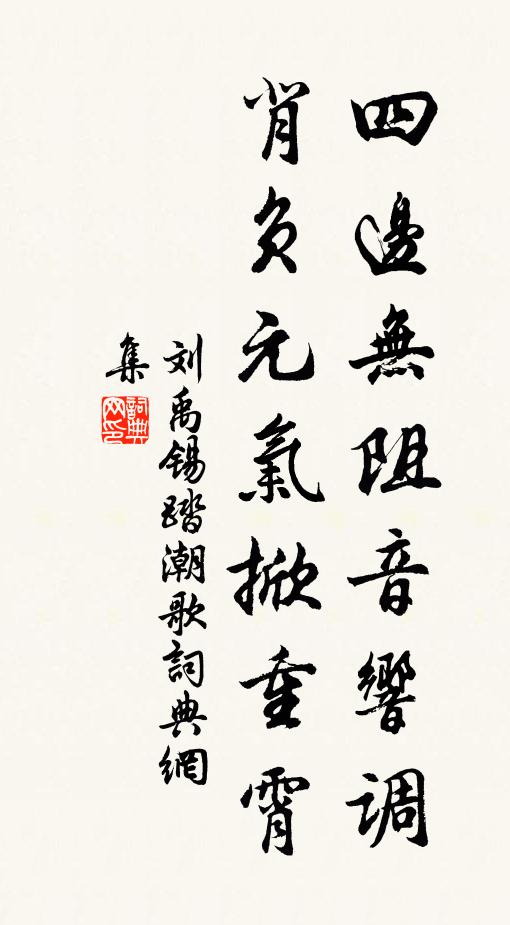 四邊無阻音響調
背负元氣掀重霄
刘禹锡踏潮歌詞典網
集
詞典网印